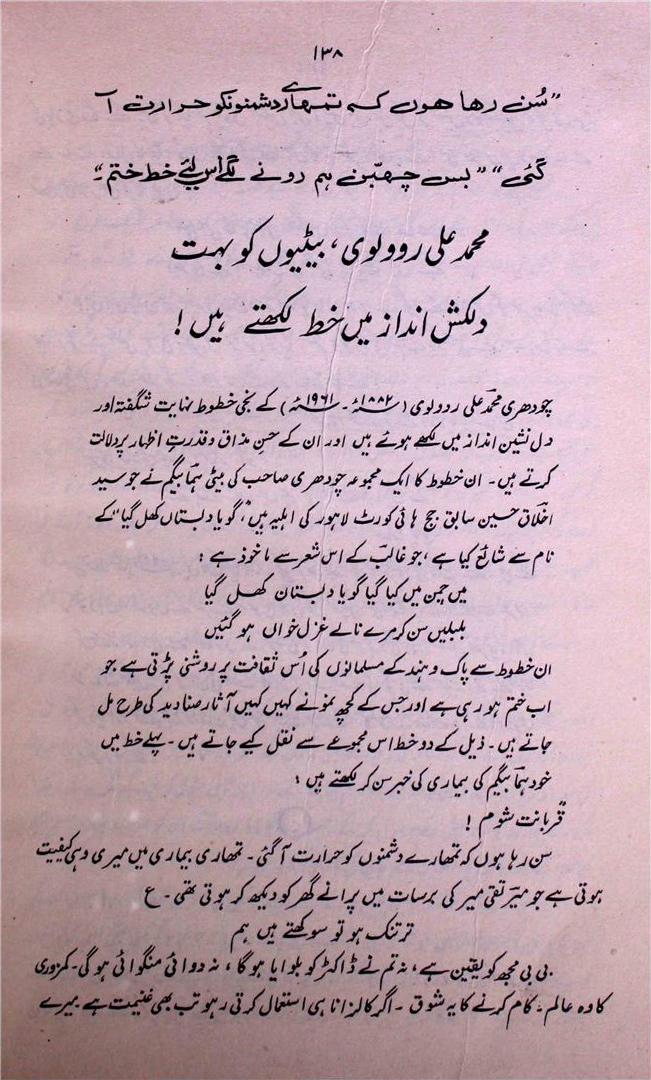 ۱۳۸
"سُن رہا ہوں کہ تمہارے دشمنوں کو حرارت آ
گئی" "بس چھبّن ہم رونے لگے اس لئے خط ختم۔"
محمد علی روولوی، بیٹیوں کو بہت
دلکش انداز میں خط لکھتے ہیں!
چودھری محمد علی ردولوی (۱۸۸۲ء ۔ ۱۹۶۱ء) کے نجی خطوط نہایت شگفتہ اور
دل نشین انداز میں لکھے ہوئے ہیں اور ان کے حسنِ مذاق و قدرتِ اظہار پر دلالت
کرتے ہیں۔ ان خطوط کا ایک مجموعہ چودھری صاحب کی بیٹی ہما بیگم نے جو سید
اخلاق حسین سابق جج ہائی کورٹ لاہور کی اہلیہ ہیں، "گویا دبستاں کھل گیا" کے
نام سے شائع کیا ہے، جو غالب کے اس شعر سے ماخوذ ہے:
میں چمن میں کیا گیا گویا دبستان کھل گیا
بلبلیں سن کر مرے نالے غزل خواں ہو گئیں
ان خطوط سے پاک و ہند کے مسلمانوں کی اُس ثقافت پر روشنی پڑتی ہے جو
اب ختم ہو رہی ہے اور جس کے کچھ نمونے کہیں کہیں آثار صنادید کی طرح مل
جاتے ہیں۔ ذیل کے دو خط اس مجموعے سے نقل کیے جاتے ہیں۔ پہلے خط میں
خود ہما بیگم کی بیماری کی خبر سن کر لکھتے ہیں:
"قربانت شوم!
سن رہا ہوں کہ تمھارے دشمنوں کو حرارت آ گئی۔ تمھاری بیماری میں میری وہی کیفیت
ہوتی ہے جو میر تقی میر کی برسات میں پرانے گھر کو دیکھ کر ہوتی تھی۔ ع
تر تنک ہو تو سوکھتے ہیں ہم
بی بی مجھ کو یقین ہے، نہ تم نے ڈاکٹر کو بلوایا ہو گا، نہ دوائی منگوائی ہو گی۔ کمزوری
کا وہ عالم۔ کام کرنے کا یہ شوق۔ اگر کالزانا ہی استعمال کرتی رہو تب بھی غنیمت ہے میرے